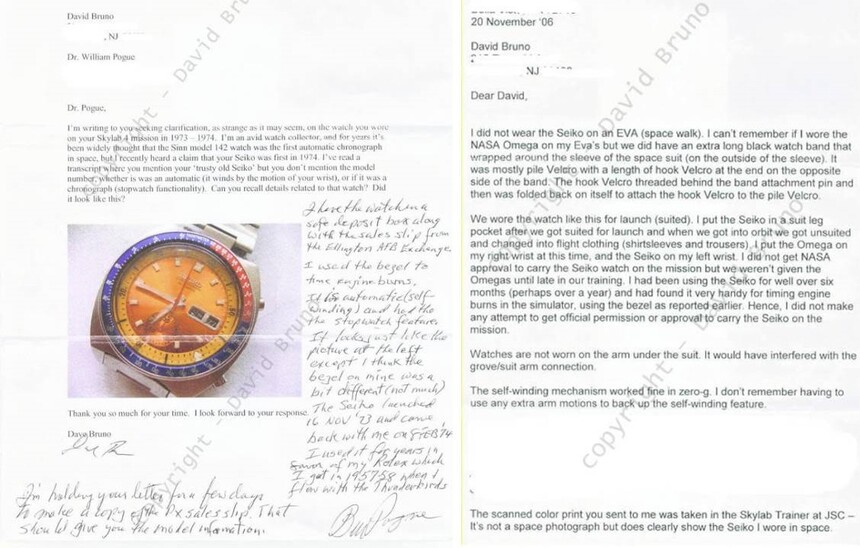 David Bruno
, NJ
Dr. William Pogue
Dr. Pogue,
I'm writing to you seeking clarification, as strange as it may seem, on the watch you wore
on your Skylab 4 mission in 1973 – 1974. I'm an avid watch collector, and for years it's
been widely thought that the Sinn model 142 watch was the first automatic chronograph
in space, but I recently heard a claim that your Seiko was first in 1974. I've read a
transcript where you mention your 'trusty old Seiko' but you don't mention the model
number, whether is was an automatic (it winds by the motion of your wrist), or if it was a
chronograph (stopwatch functionality). Can you recall details related to that watch? Did
it look like this?
I have the watch in a
safe deposit box along
with the sales slip from
the Ellington AFB Exchange.
I used the bezel to
time engine burns.
It is automatic (self
winding) and had the
the stopwatch feature.
It looks just like the
picture at the left
except I think the
bezel on mine was a
bit different (not much)
The Seiko launched
16 NOV '73 and came
back with me on 8 FEB '74
I used it for years in
favor of my Rolex which
I got in 1957-58 when I
flew with the Thunderbirds
Bill Pogue
Thank you so much for your time. I look forward to your response.
Dave Bruno
I'm holding your letter for a few days
to make a copy of the Px sales slip. That
should give you the model information.
20 November '06
David Bruno
NJ
Dear David,
I did not wear the Seiko on an EVA (space walk). I can't remember if I wore the
NASA Omega on my Eva's but we did have an extra long black watch band that
wrapped around the sleeve of the space suit (on the outside of the sleeve). It
was mostly pile Velcro with a length of hook Velcro at the end on the opposite
side of the band. The hook Velcro threaded behind the band attachment pin and
then was folded back on itself to attach the hook Velcro to the pile Velcro.
We wore the watch like this for launch (suited). I put the Seiko in a suit leg
pocket after we got suited for launch and when we got into orbit we got unsuited
and changed into flight clothing (shirtsleeves and trousers). I put the Omega on
my right wrist at this time, and the Seiko on my left wrist. I did not get NASA
approval to carry the Seiko watch on the mission but we weren't given the
Omegas until late in our training. I had been using the Seiko for well over six
months (perhaps over a year) and had found it very handy for timing engine
burns in the simulator, using the bezel as reported earlier. Hence, I did not make
any attempt to get official permission or approval to carry the Seiko on the
mission.
Watches are not worn on the arm under the suit. It would have interfered with the
grove/suit arm connection.
The self-winding mechanism worked fine in zero-g. I don't remember having to
use any extra arm motions to back up the self-winding feature.
The scanned color print you sent to me was taken in the Skylab Trainer at JSC –
It's not a space photograph but does clearly show the Seiko I wore in space.
copyright - David Bruno
copyright - David Bruno
copyright - David Bruno
copyright - David Bruno